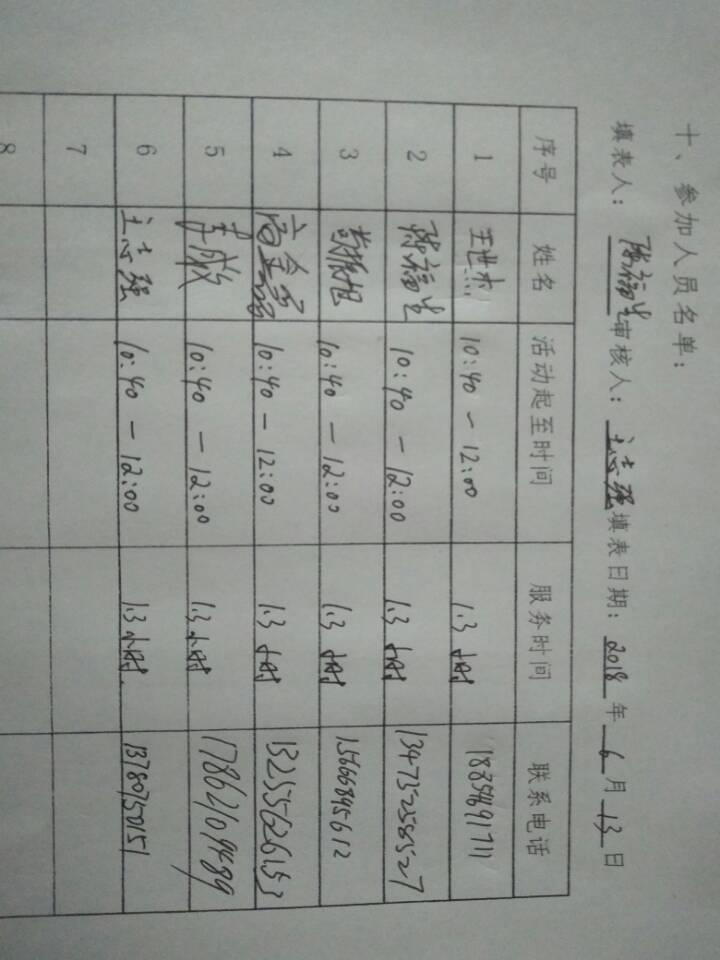 十、参加人员名单：
填表人：陈福生审核人：王志强填表日期：2018年6月13日
序号 姓名 活动起至时间 服务时间 联系电话
1 王世杰 10:40-12:00 1.3小时
2 陈福生 10:40-12:00 1.3小时
3 10:40-12:00 1.3小时 15666895612
4 10:40-12:00 1.3小时
5 李成敏 10:40-12:00 1.3小时
6 王志强 10:40-12:00 1.3小时. 13780750151
7
8